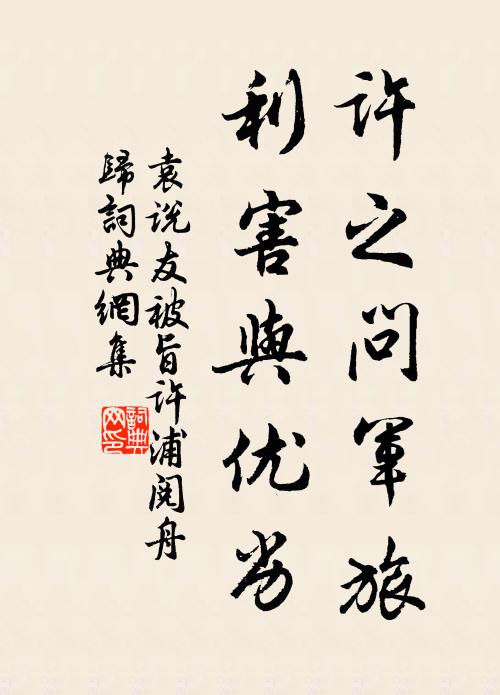 许之问军旅
利害與优劣
袁说友被旨许浦阅舟
歸詞典網集
詞典网印